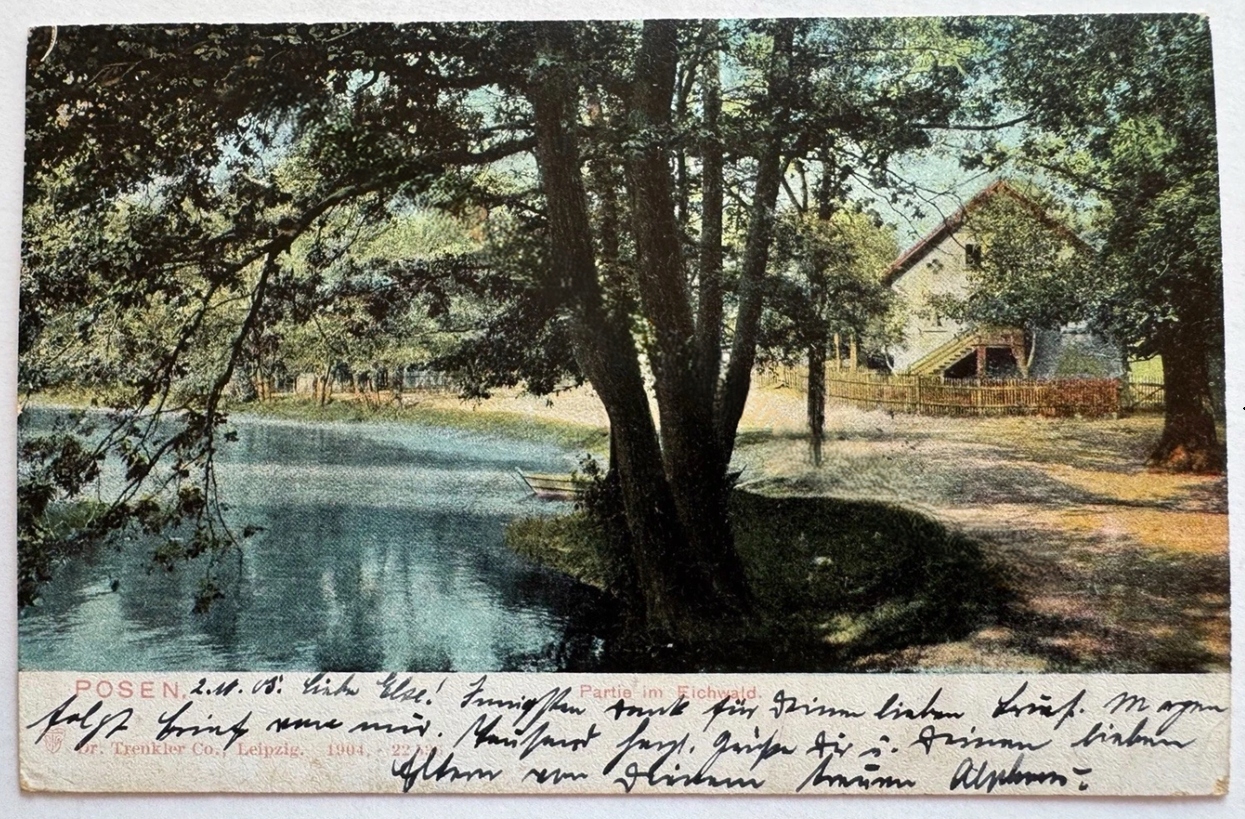 POSEN.
Partie im Eichwald.
2.11.05. Liebe Else! Innigsten Dank für Deinen lieben Brief. Morgen
folgt Brief von mir. Tausend herzl. Grüße Dir u. Deinen lieben
Eltern von Deinem treuen Alphons.
Dr. Trenkler Co., Leipzig. 1904. - 22